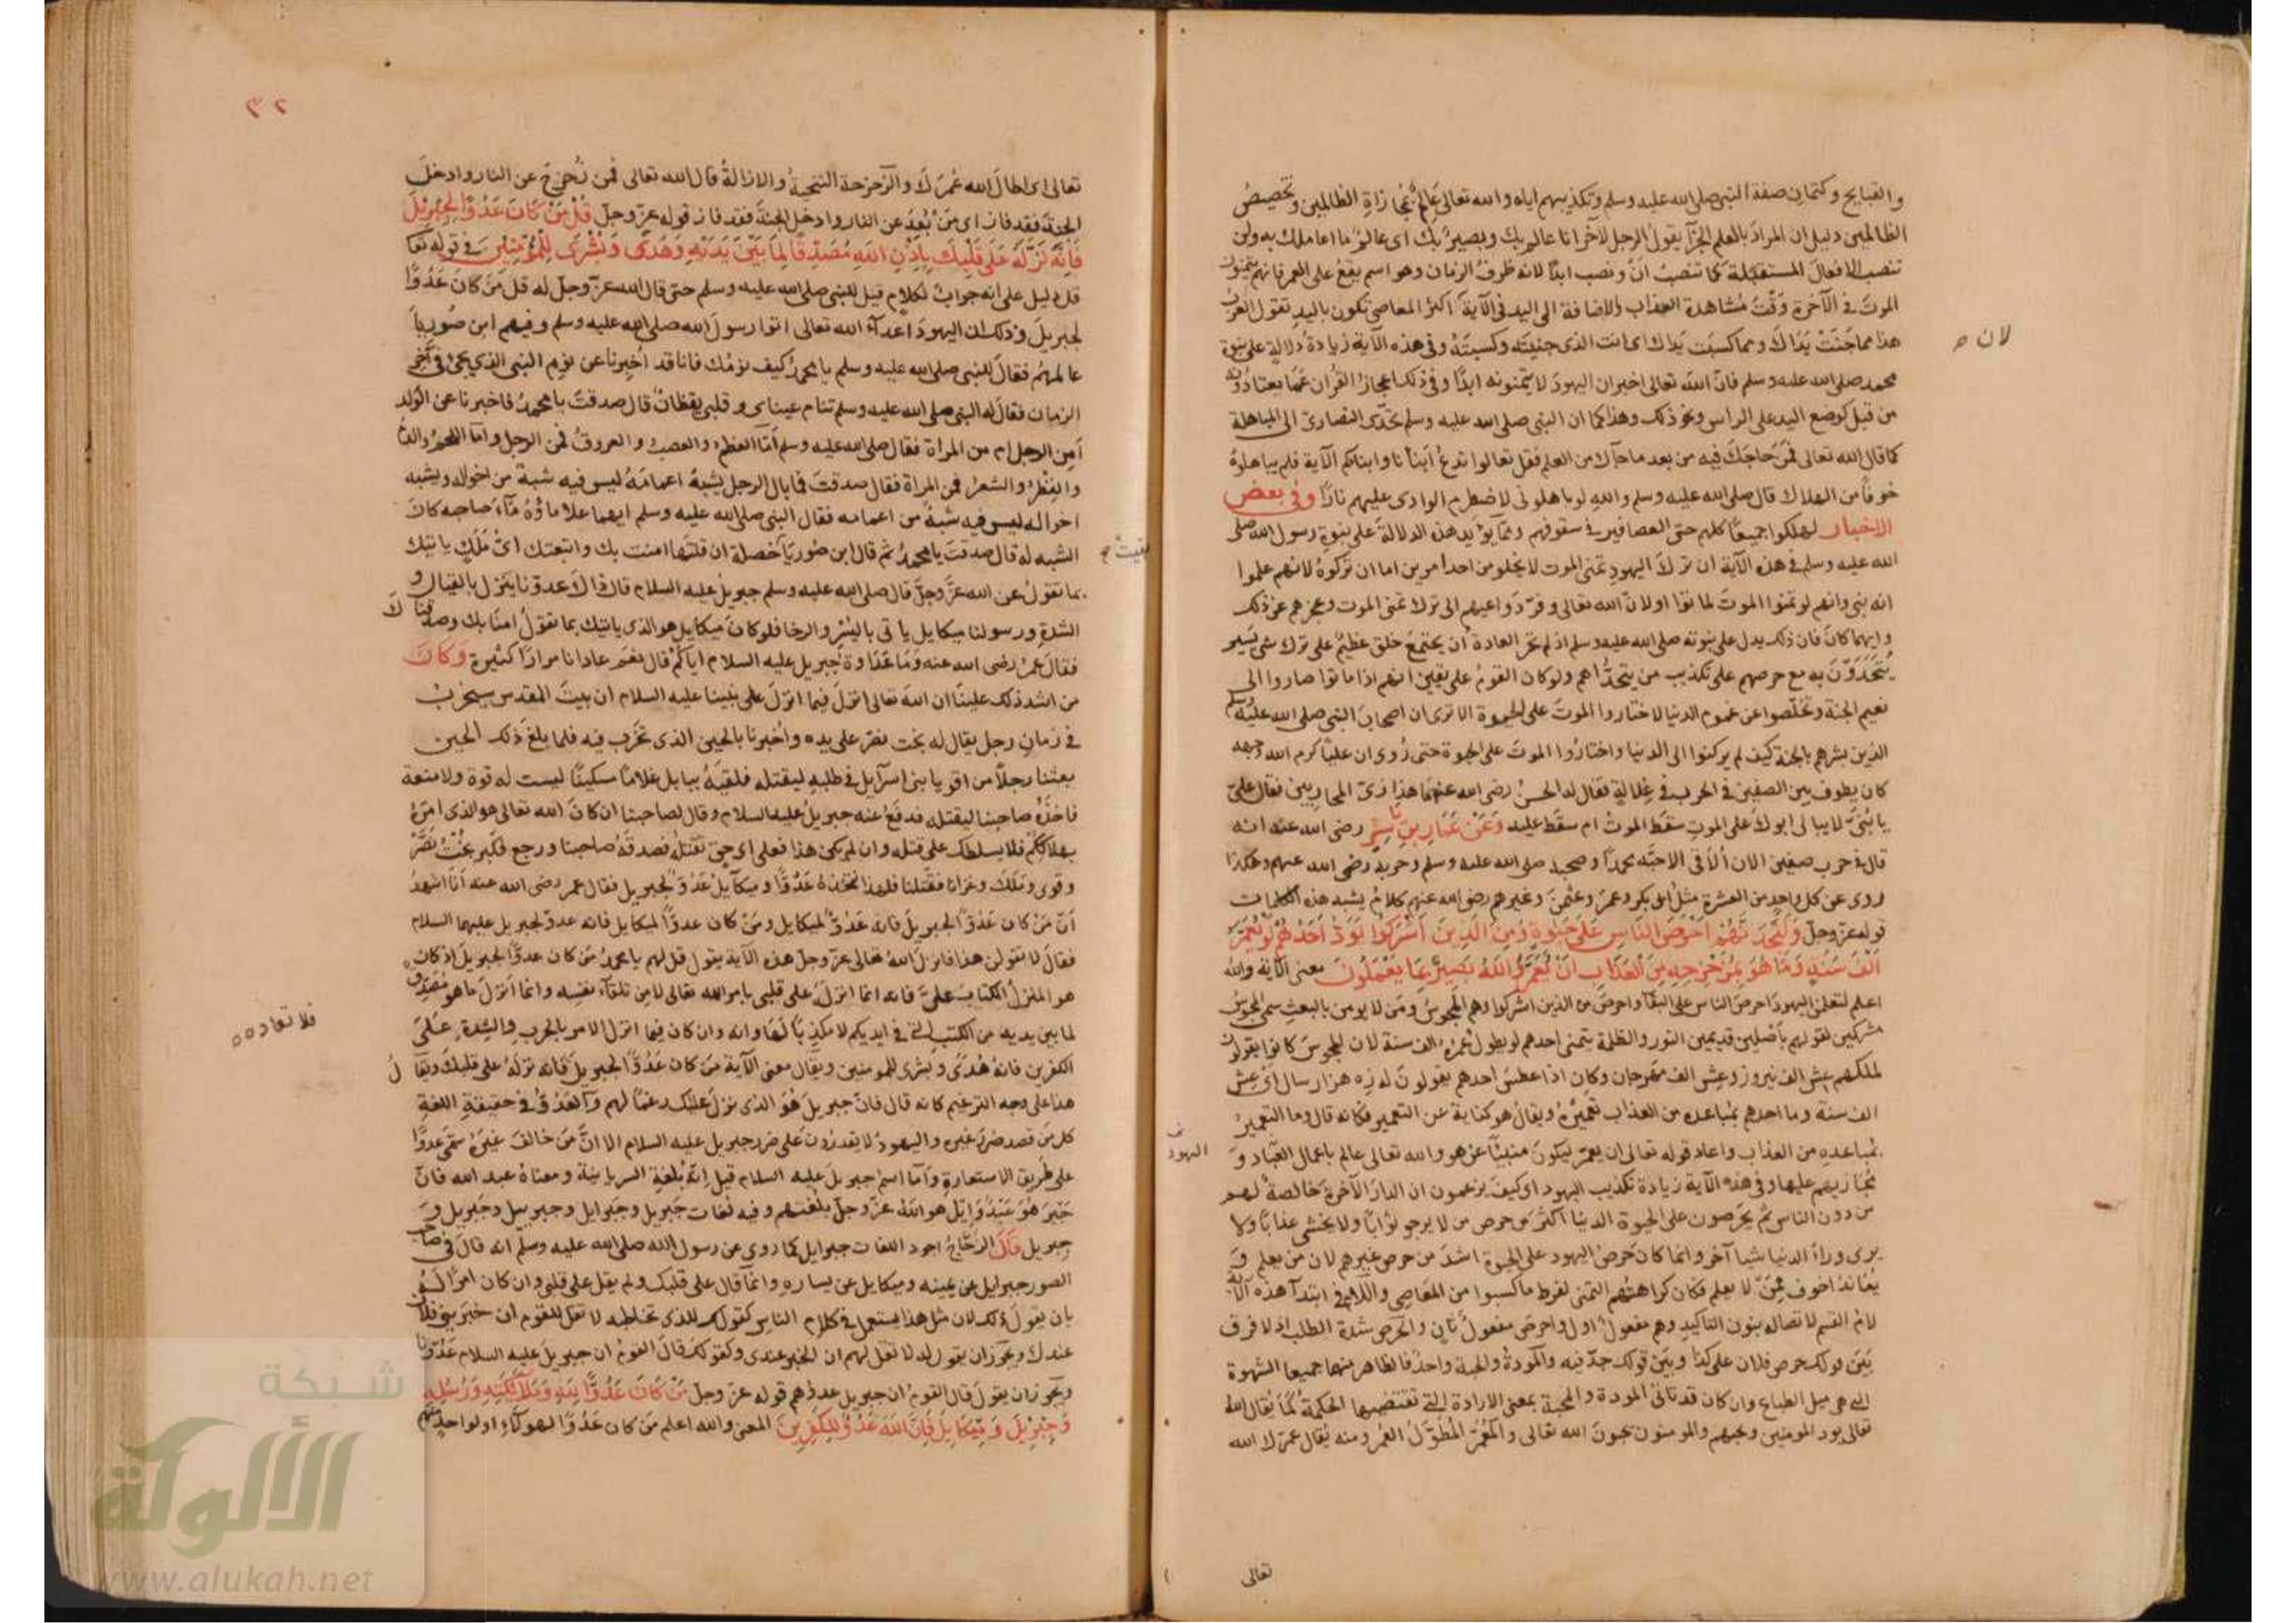 والقبايح وكتمان صفة النبى صلى الله عليه وسلم وتكذيبهم اياه والله تعالى عالم بمجازاة الظالمين وتخصيص
الظالمين دليل ان المراد بالعلم الجزآ يقول الرجل لآخر انا عالم بك وبصير بك اى عالم ما اعاملك به ولن
تنصب الافعال المستقبلة كما تنصب ان ونصب ابدا لانه ظرف الزمان وهو اسم يقع على العمر فانهم يتمنون
الموت فى الآخرة وقت مشاهدة العذاب والاضافة الى اليد فى الآية اكثر المعاصى تكون باليد تقول العرب
هذا مما جنت يداك ومما كسبت يداك اى انت الذى جنيته وكسبته وفى هذه الآية زيادة دلالة على نبوة
لان ح
محمد صلى الله عليه وسلم فان الله تعالى اخبر ان اليهود لا يتمنونه ابدا وفى ذلك اعجاز القرآن عما يعتادونه
من قبل كوضع اليد على الراس ونحو ذلك وهذا كما ان النبى صلى الله عليه وسلم تحدى النصارى الى المباهلة
كما قال الله تعالى فمن حاجك فيه من بعد ماجآك من العلم فقل تعالوا ندع ابنآنا وابناكم الآية فلم يباهلوه
خوفا من الهلاك قال صلى الله عليه وسلم والله لو باهلونى لاضطرم الوادى عليهم نارا وفى بعض
الاخبار لهلكوا جميعا كلهم حتى العصافير فى سقوفهم ومما يؤيد هذه الدلالة على نبوة رسول الله صلى
الله عليه وسلم فى هذه الآية ان ترك اليهود تمنى الموت لا يخلو من احد امرين اما ان تركوه لانهم علموا
انه نبى وانهم لو تمنوا الموت لماتوا او لان الله تعالى وفر دواعيهم الى ترك تمنى الموت وعجزهم عن ذلك
وايهما كان فان ذلك يدل على نبوته صلى الله عليه وسلم اذ لم تجر العادة ان يجتمع خلق عظيم على ترك شى يسير
يتحدون به مع حرصهم على تكذيب من يتحداهم ولو كان القوم على يقين انهم اذا ماتوا صاروا الى
نعيم الجنة وتخلصوا عن غموم الدنيا لاختاروا الموت على الحيوة الا ترى ان اصحاب النبى صلى الله عليه وسلم
الذين بشرهم بالجنة كيف لم يركنوا الى الدنيا واختاروا الموت على الحيوة حتى روى ان عليا كرم الله وجهه
كان يطوف بين الصفين فى الحرب فى غلالة فقال له الحسن رضى الله عنهما هذا زى المحاربين فقال على
يا بنى لا يبالى ابوك على الموت سقط الموت ام سقط عليه وعن عمار بن ياسر رضى الله عنه انه
قال فى حرب صفين الان الاقى الاحبه محمدا وصحبه صلى الله عليه وسلم وحزبه رضى الله عنهم وهكذا
روى عن كل واحد من العشرة مثل ابى بكر وعمر وعثمن وغيرهم رضى الله عنهم كلام يشبه هذه الكلمات
قوله عز وجل ولتجدنهم احرص الناس على حيوة ومن الذين اشركوا يود احدهم لو يعمر
الف سنة وما هو بمزحزحه من العذاب ان يعمر والله بصير بما يعملون معنى الآية والله
اعلم لتعلمن اليهود احرص الناس على البقآ واحرص من الذين اشركوا وهم المجوس ومن لا يومن بالبعث سمى المجوس
مشركين لقولهم باصلين قديمين النور والظلمة يتمنى احدهم لو يطول عمره الف سنة لان المجوس كانوا يقولون
لملكهم عش الف نيروز وعش الف مهرجان وكان اذا عطس احدهم يقولون له زه هزار سال اى عش
الف سنة وما احدهم بمباعده من العذاب تعميره ويقال هو كناية عن التعمير فكانه قال وما التعمير
بمباعده من العذاب واعاد قوله تعالى ان يعمر ليكون منبيا عن هو والله تعالى عالم باعمال العباد و
اليهود
مجازيهم عليها وفى هذه الآية زيادة تكذيب اليهود اى كيف يزعمون ان الدار الآخرة خالصة لهم
من دون الناس ثم يحرصون على الحيوة الدنيا اكثر من حرص من لا يرجو ثوابا ولا يخشى عذابا ولا
يرى ورآ الدنيا شيا آخر وانما كان حرص اليهود على الحيوة اشد من حرص غيرهم لان من يعلم و
يعاند اخوف ممن لا يعلم فكان كراهتهم التمنى لفرط ما كسبوا من المعاصى واللام فى ابتدآ هذه الآية
لام القسم لاتصاله بنون التاكيد وهم مفعول اول واحرص مفعول ثان والحرص شدة الطلب اذ لا فرق
بين قولك حرص فلان على كذا وبين قولك جد فيه والمودة والمحبة واحد فالظاهر منهما جميعا الشهوة
التى هى ميل الطباع وان كان قد تاتى المودة والمحبة بمعنى الارادة التى تقتضيها الحكمة كما يقال الله
تعالى يود المومنين ويحبهم والمومنون يحبون الله تعالى والمعمر المطول العمر ومنه يقال عمرك الله
تعالى
٣٢
تعالى اى اطال الله عمرك والزحزحة التنحية والازالة قال الله تعالى فمن زحزح عن النار وادخل
الجنة فقد فاز اى من بعد عن النار وادخل الجنة فقد فاز قوله عز وجل قل من كان عدوا لجبريل
فانه نزله على قلبك باذن الله مصدقا لما بين يديه وهدى وبشرى للمؤمنين فى قوله تعا
قل دليل على انه جواب لكلام قيل للنبى صلى الله عليه وسلم حتى قال الله عز وجل له قل من كان عدوا
لجبريل وذلك ان اليهود اعدآء الله تعالى اتوا رسول الله صلى الله عليه وسلم وفيهم ابن صوريا
عالمهم فقال للنبى صلى الله عليه وسلم يا محمد كيف نومك فانا قد اخبرنا عن نوم النبى الذى يجى فى آخر
الزمان فقال له النبى صلى الله عليه وسلم تنام عيناى وقلبى يقظان قال صدقت يا محمد فاخبرنا عن الولد
أمن الرجل ام من المراة فقال صلى الله عليه وسلم اما العظم والعصب والعروق فمن الرجل واما اللحم والدم
والظفر والشعر فمن المراة فقال صدقت فما بال الرجل يشبه اعمامه ليس فيه شبه من اخواله ويشبه
اخواله ليس فيه شبه من اعمامه فقال النبى صلى الله عليه وسلم ايهما علا ماؤه مآء صاحبه كان
الشبه له قال صدقت يا محمد ثم قال ابن صوريا خصلة ان قلتها امنت بك واتبعتك اى ملك ياتيك
بقيت ح
بما تقول عن الله عز وجل قال صلى الله عليه وسلم جبريل عليه السلام قال ذاك عدونا ينزل بالقتال و
الشدة ورسولنا ميكايل ياتى بالبشر والرخا فلو كان ميكايل هو الذى ياتيك بما تقول امنا بك وصدقناك
فقال عمر رضى الله عنه وما عداوة جبريل عليه السلام اياكم قال نعم عادانا مرارا كثيرة وكان
من اشد ذلك علينا ان الله تعالى انزل فيما انزل على نبينا عليه السلام ان بيت المقدس سيخرب
فى زمان رجل يقال له بخت نصر على يده واخبرنا بالحين الذى تخرب فيه فلما بلغ ذلك الحين
بعثنا رجلا من اقويا بنى اسرآيل فى طلبه ليقتله فلقيه ببابل غلاما مسكينا ليست له قوة ولا منعة
فاخذه صاحبنا ليقتله فدفع عنه جبريل عليه السلام وقال لصاحبنا ان كان الله تعالى هو الذى امره
بهلاككم فلا يسلطك على قتله وان لم يكن هذا فعلى اى حق تقتله فصدقه صاحبنا ورجع فكبر بخت نصر
وقوى وملك وغزانا فقتلنا فلهذا نتخذه عدوا وميكآيل عدو لجبريل فقال عمر رضى الله عنه انا اشهد
ان من كان عدوا لجبريل فانه عدو لميكايل ومن كان عدوا لميكايل فانه عدو لجبريل عليهما السلام
فقال لا تقولن هذا فانزل الله تعالى عز وجل هذه الآية يقول قل لهم يا محمد من كان عدوا لجبريل اذ كان
هو المنزل الكتاب على فانه انما انزله على قلبى بامر الله تعالى لا من تلقآء نفسه وانما انزل ما هو مصدق
لما بين يديه من الكتب التى فى ايديكم لا مكذبا لها وانه وان كان فيما انزل الامر بالحرب والشدة على
فلا تعادوه
الكفرين فانه هدى وبشرى للمومنين ويقال معنى الآية من كان عدوا لجبريل فانه نزله على قلبك ويقال
هذا على وجه الترغيم كانه قال فان جبريل هو الذى نزل عليك رغما لهم والعدو فى حقيقة اللغة
كل من قصد ضرر غيره واليهود لا يقدرون على ضرر جبريل عليه السلام الا ان من خالف غيره سمى عدوا
على طريق الاستعارة واما اسم جبريل عليه السلام قيل انه بلغة السريانية ومعناه عبد الله فان
جبر هو عبد وايل هو الله عز وجل بلغتهم وفيه لغات جبريل وجبرايل وجبرييل وجبريل و
جبريل قال الزجاج اجود اللغات جبرايل كما روى عن رسول الله صلى الله عليه وسلم انه قال فى صاحب
الصور جبرايل عن يمينه وميكايل عن يساره وانما قال على قلبك ولم يقل على قلبى وان كان امرا له
بان يقول ذلك لان مثل هذا يستعمل فى كلام الناس كقولك للذى تخاطبه لا تقل للقوم ان خبر بنى فلان
عندك ويجوز ان يقول له لا تقل لهم ان الخبر عندى وكقولك قال القوم ان جبريل عليه السلام عدونا
ويجوز ان يقول قال القوم ان جبريل عدوهم قوله عز وجل من كان عدوا لله وملائكته ورسله
وجبريل وميكايل فان الله عدو للكفرين المعنى والله اعلم من كان عدوا لهولآء او لواحد منهم
شبكة
الألوكة
www.alukah.net